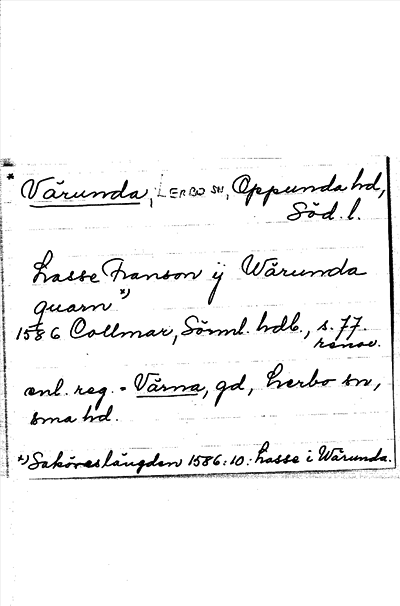 * Vårunda, LERBO SN, Oppunda hd,
Söd. l.
Lasse Franson ij Wårunda
quarn *)
1586 Collmar, Sörml. hdl., s. 77.
renov.
enl. reg. = Vårna, gd, Lerbo sn,
sma hd.
*) Saköreslängden 1586:10: Lasse i Wårunda.